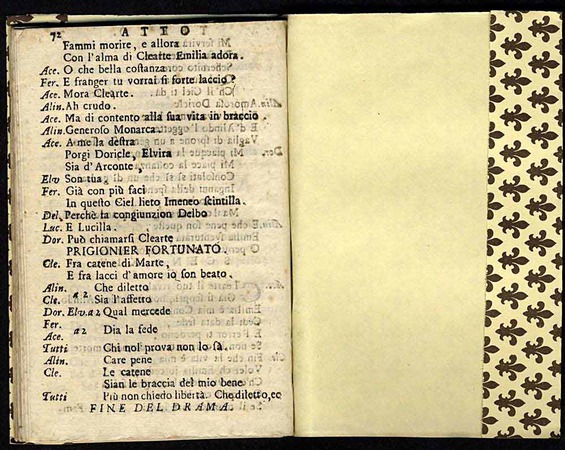 72 ATTO
Fammi morire, e allora
Con l'alma di Clearte Emilia adora.
Ace. O che bella costanza.
Fer. E franger tu vorrai sì forte laccio?
Ace. Mora Clearte.
Alin. Ah crudo.
Ace. Ma di contento alla sua vita in braccio.
Alin. Generoso Monarca.
Ace. A me la destra
Porgi Doricle, Elvira
Sia d'Arconte.
Elv. Son tua.
Fer. Già con più faci
In questo Ciel lieto Imeneo scintilla.
Del. Perchè la congiunzion Delbo
Luc. E Lucilla.
Dor. Può chiamarsi Clearte
PRIGIONIER FORTUNATO.
Cle. Fra catene di Marte,
E fra lacci d'amore io son beato.
Alin. Che diletto
Cle. a 2 Sia l'affetto
Dor. Elv. a 2 Qual mercede
Fer.
a 2 Dia la fede
Ace.
Tutti Chi nol prova non lo sa.
Alin. Care pene
Cle. Le catene
Sian le braccia del mio bene
Tutti Più non chiedo libertà. Che diletto, ec
FINE DEL DRAMA.